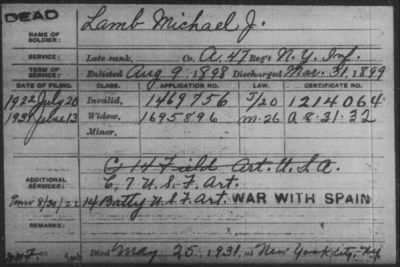 DEAD
NAME OF SOLDIER: Lamb Michael J.
SERVICE: Late rank, Co. A. 47 Reg't N. Y. Inf.
TERM OF SERVICE: Enlisted Aug 9. 1898 Discharged Mar. 31. 1899
DATE OF FILING. CLASS. APPLICATION NO. LAW. CERTIFICATE NO.
1922 July 20 Invalid, 1469756 5/20 1214064
1931 June 13 Widow, 1695896 m-26 a 8-31-32
Minor,
C 14 Field Art. U. S. A.
ADDITIONAL SERVICES: 6, 7 U. S. F. Art.
8/30/22 14 Batty U. S. F. Art. WAR WITH SPAIN
REMARKS:
Died May 25, 1931, at New York City, N.Y.